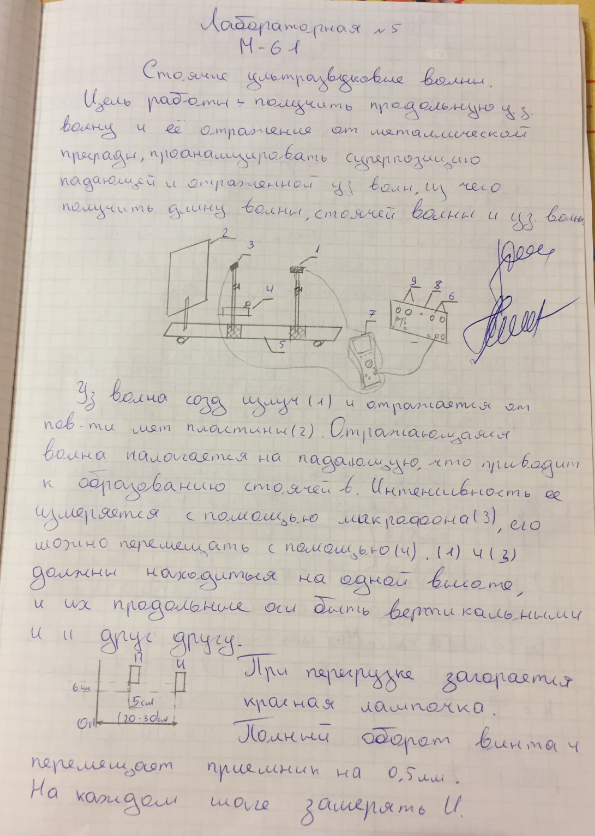 Лабораторная №5
М-61
Стоячие ультразвуковые волны.
Цель работы - получить продольную уз.
волну и её отражение от металлической
преграды, проанализировать суперпозицию
падающей и отраженной уз волн, из чего
получить длину волны, стоячей волны и уз волны
2
3
1
4
9 8 6
7
5
Уз волна созд излуч (1) и отражается от
пов-ти мет пластины (2). Отражающаяся
волна налогается на падающую, что приводит
к образованию стоячей в. Интенсивность ее
измеряется с помощью макрафона (3), его
можно перемещать с помощью (4). (1) и (3)
должны находиться на одной высоте,
и их продольные оси быть вертикальными
и II друг другу.
П И
6см
5см
0
(20-30)см
При перегрузке загорается
красная лампочка.
Полный оборот винта 4
перемещает приемник на 0,5мм.
На каждом шаге замерять U.